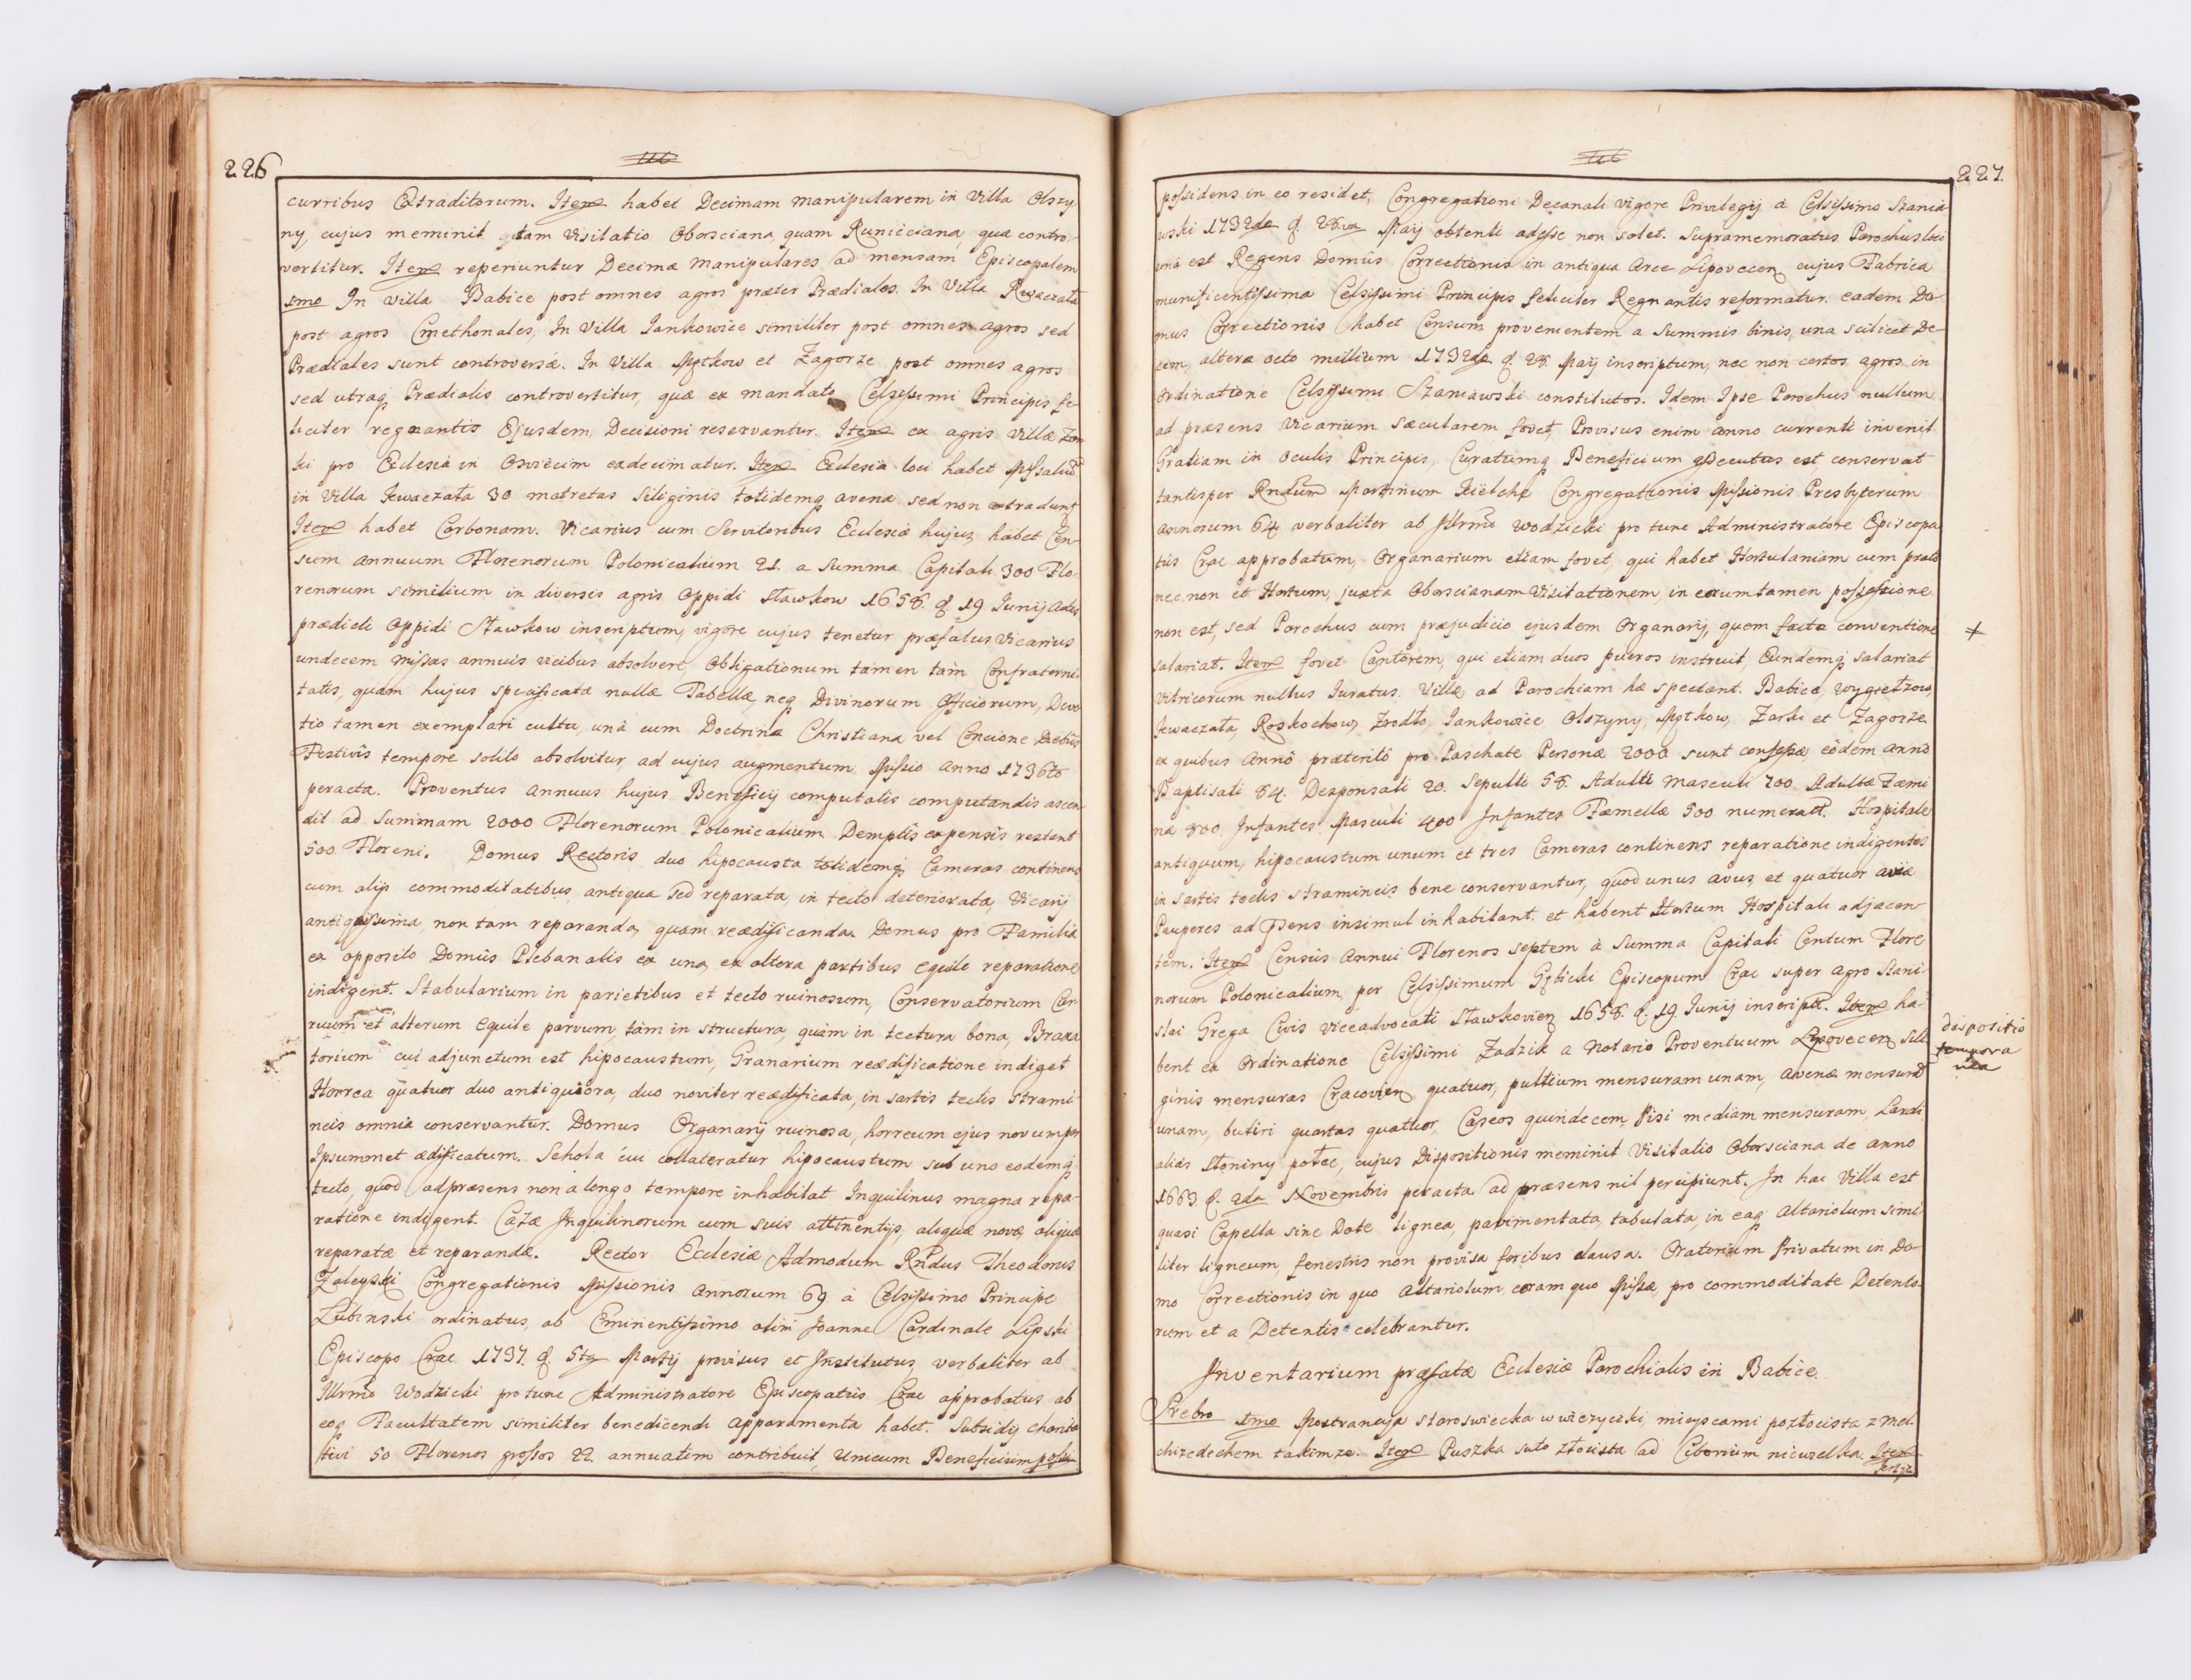 226
curribus Extraditorum. Item habet Decimam manipularem in Villa Olszy
ny, cujus meminit tam Visitatio Oborsciana quam Kunicciana, quæ contro-
vertitur. Item reperiuntur Decimæ Manipulares ad mensam Episcopalem
1mo In Villa Babice post omnes agros præter Prædiales. In Villa Kwaczała
post agros Cmethonales, In Villa Iankowice similiter post omnes agros sed
Prædiales sunt controversæ. In Villa Mętkow et Zagorze post omnes agros
sed utraq Prædialis controvertitur, quæ ex mandato Celsissimi Principis fe-
liciter regnantis Ejusdem Decisioni reservantur. Item ex agris Villæ Zar
ki pro Ecclesia in Osviecim exdecimatur. Item Ecclesia loci habet Missaliu
in Villa Kwaczała 30 metretas siliginis totidemq avenæ sed non extradunt
Item habet Carbonam. Vicarius cum Servitoribus Ecclesiæ hujus habet Cen-
sum annuum Florenorum Polonicalium 21. a Summa Capitali 300 Flo-
renorum similium in diversis agris Oppidi Sławkow 1658. d 19 Junij Actis
prædicti Oppidi Sławkow inscriptum, vigore cujus tenetur præfatus Vicarius
undecem Missas annuis vicibus absolvere, Obligationum tamen tam Confraterni-
tatis, quam hujus specificatæ nullæ Tabellæ, neq Divinorum Officiorum, Devo
tio tamen exemplari cultu, unà cum Doctrina Christiana vel Concione Diebus
Festivis tempore solito absolvitur, ad cujus augmentum Missio Anno 1736to
peracta. Proventus annuus hujus Beneficij computatis computandis ascen
dit ad Summam 2000 Florenorum Polonicalium Demptis expensis restent
500 Floreni. Domus Rectoris duo hipocausta totidemq Cameras continens
cum alijs commoditatibus antiqua sed reparata, in tecto deteriorata, Vicarij
antiquissima, non tam reparanda, quam reædificanda. Domus pro Familia
ex opposito Domûs Plebanalis ex una, ex altera partibus Equile reparatione
indigent. Stabularium in parietibus et tecto ruinosum, Conservatorium Cur
ruum et alterum Equile parvum, tàm in structura, quàm in tectura bona, Braxa
torium cui adjunctum est hipocaustum, Granarium reædificatione indiget
Horrea quatuor duo antiquiora, duo noviter reædificata, in sartis tectis strami-
neis omnia conservantur. Domus Organarij ruinosa, horreum ejus novum per
Ipsummet ædificatum. Schola cui collateratur hipocaustum sub uno eodemq
tecto, quod ad præsens non à longo tempore inhabitat Inquilinus magna repa-
ratione indigent. Casæ Inquilinorum cum suis attinentijs, aliquæ novæ, aliquæ
reparatæ et reparandæ. Rector Ecclesiæ Admodum Rndus Theodorus
Zaleyski Congregationis Missionis Annorum 69 à Celsissimo Principe
Lubinski ordinatus, ab Eminentissimo olim Joanne Cardinale Lipski
Episcopo Crac 1737. d 5ta Martij provisus et Institutus, verbaliter ab
Illrmo Wodzicki pro tunc Administratore Episcopatus Crac approbatus ab
eoq Facultatem similiter benedicendi Apparamenta habet. Subsidij charita
tivi 50 Florenos grossos 22. annuatim contribuit, Unicum Beneficium possi-
227.
possidens in eo residet, Congregationi Decanali vigore Privilegij à Celsissimo Szania
wski 1732do d 28va Maij obtenti adesse non solet. Supramemoratus Parochus loci
unà est Regens Domûs Correctionis in antiqua Arce Lipovecen cujus Fabrica
munificentissima Celsissimi Principis feliciter Regnantis reformatur. eadem Do-
mus Correctionis habet Censum provenientem a Summis binis, una scilicet De-
cem, altera octo millium 1732do d 28. Maij inscriptum, nec non certos agros in
Ordinatione Celsissimi Szaniawski constitutos. Idem Ipse Parochus nullum
ad præsens Vicarium Sæcularem fovet, Provisus enim Anno currenti invenit
Gratiam in Oculis Principis, Curatumq Beneficium assecutus est, conservat
tantisper Rndum Martinum Kielche Congregationis Missionis Presbyterum
annorum 64 verbaliter ab Illrmo Wodzicki pro tunc Administratore Episcopa
tûs Crac approbatum, Organarium etiam fovet, qui habet Hortulaniam cum prato
nec non et Hortum, juxta Oborscianam Visitationem, in eorum tamen possessione
non est, sed Parochus cum præjudicio ejusdem Organarij, quem facta conventione
+
salariat. Item fovet Cantorem, qui etiam duos pueros instruit, Eundemq salariat
Vitricorum nullus Iuratus. Villæ ad Parochiam hæ spectant. Babice, Wygiełzow,
Kwaczała, Roskochow, Zrodło, Iankowice Olszyny, Mętkow, Zarki et Zagorze
ex quibus Annô præteritô pro Paschate Personæ 2000 sunt confessæ, eôdem anno
Baptisati 84. Desponsati 20. Sepulti 58. Adulti Masculi 700. Adultæ Fæmi
næ 800. Infantes Masculi 400 Infantes Fæmellæ 500 numerantr. Hospitale
antiquum, hipocaustum unum et tres Cameras continens reparatione indigentes
in sartis tectis stramineis bene conservantur, quod unus avus, et quatuor aviæ
Pauperes ad psens insimul inhabitant. et habent Hortum Hospitali adjacen-
tem. Item Censûs Annui Florenos septem à Summa Capitali Centum Flore
norum Polonicalium, per Celsissimum Gębicki Episcopum Crac super agro Stani-
slai Grega Civis Viceadvocati Sławkovien 1658. d. 19. Junij inscript. Item ha-
bent ex Ordinatione Celsissimi Zadzik a Notario Proventuum Lipovecen sili
dispositio
tempora
nea
ginis mensuras Cracovien quatuor, pultium mensuram unam, avenæ mensura
unam, butiri quartas quatuor, Caseos quindecem, Pisi mediam mensuram, Lardi
alias Słoniny połec, cujus Dispositionis meminit Visitatio Oborsciana de anno
1663. d. 2da Novembris peracta. ad præsens nil percipiunt. In hac Villa est
quasi Capella sine Dote lignea, pavimentata, tabulata, in eaq Altariolum simi-
liter ligneum, fenestris non provisa foribus clausa. Oratorium Privatum in Do-
mo Correctionis, in quo Altariolum, coram quo Missæ, pro commoditate Detento
rum et a Detentis celebrantur.
Inventarium præfatæ Ecclesiæ Parochialis in Babice.
Srebro 1mo Monstrancya staroswiecka w wiezyczki, mieyscami pozłocista z Mel
chizedechem takimze. Item Puszka suto złocista ad Ciborium niewielka. Item